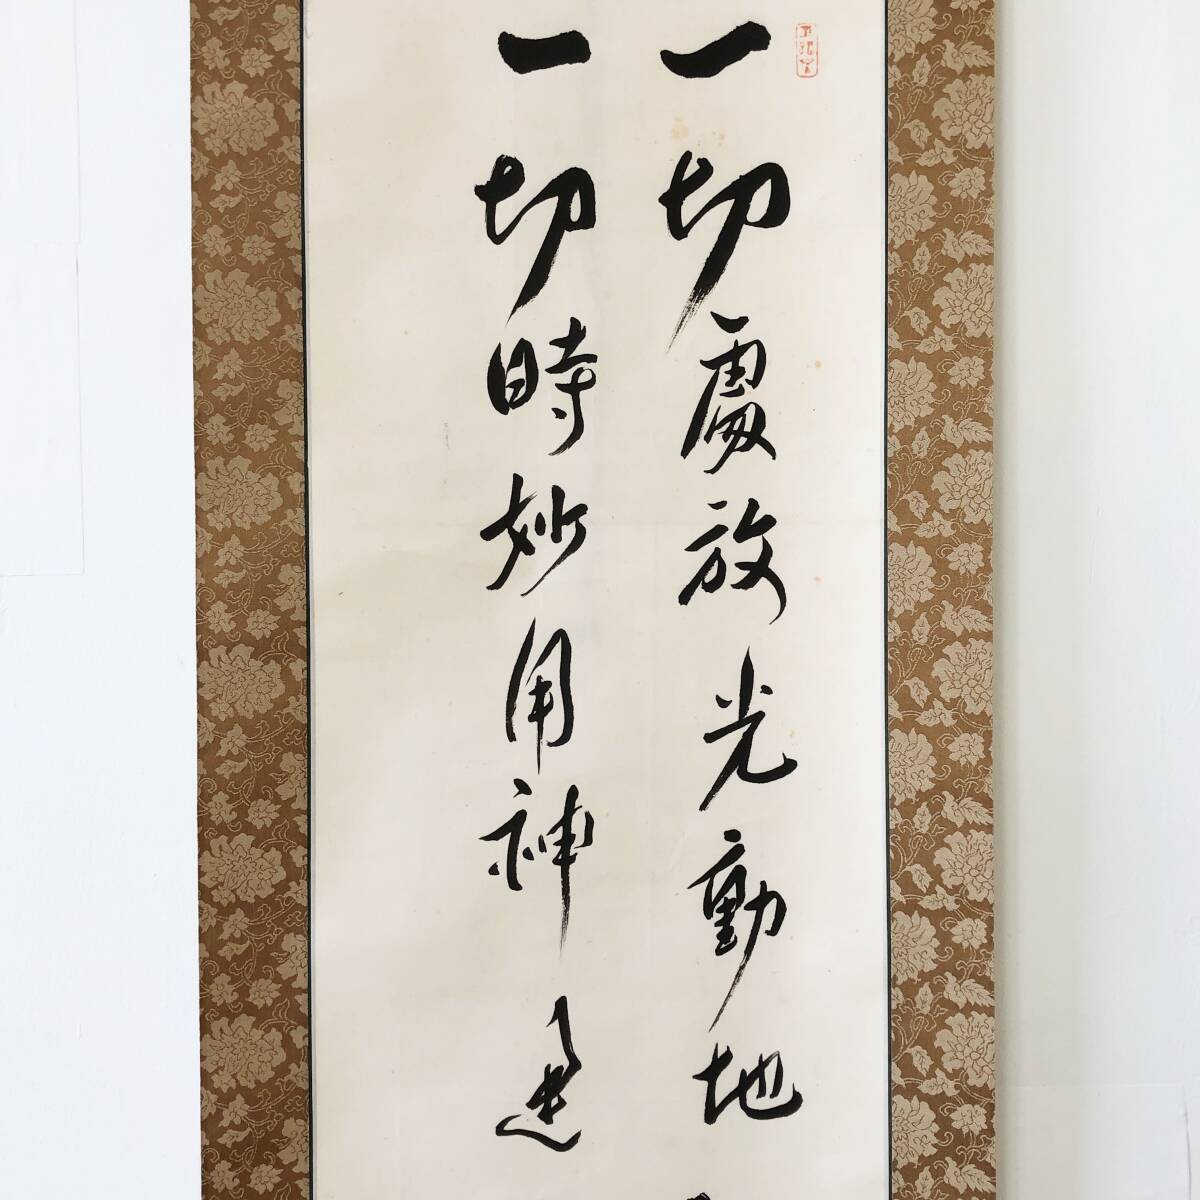 一切處放光動地
一切時妙用神通